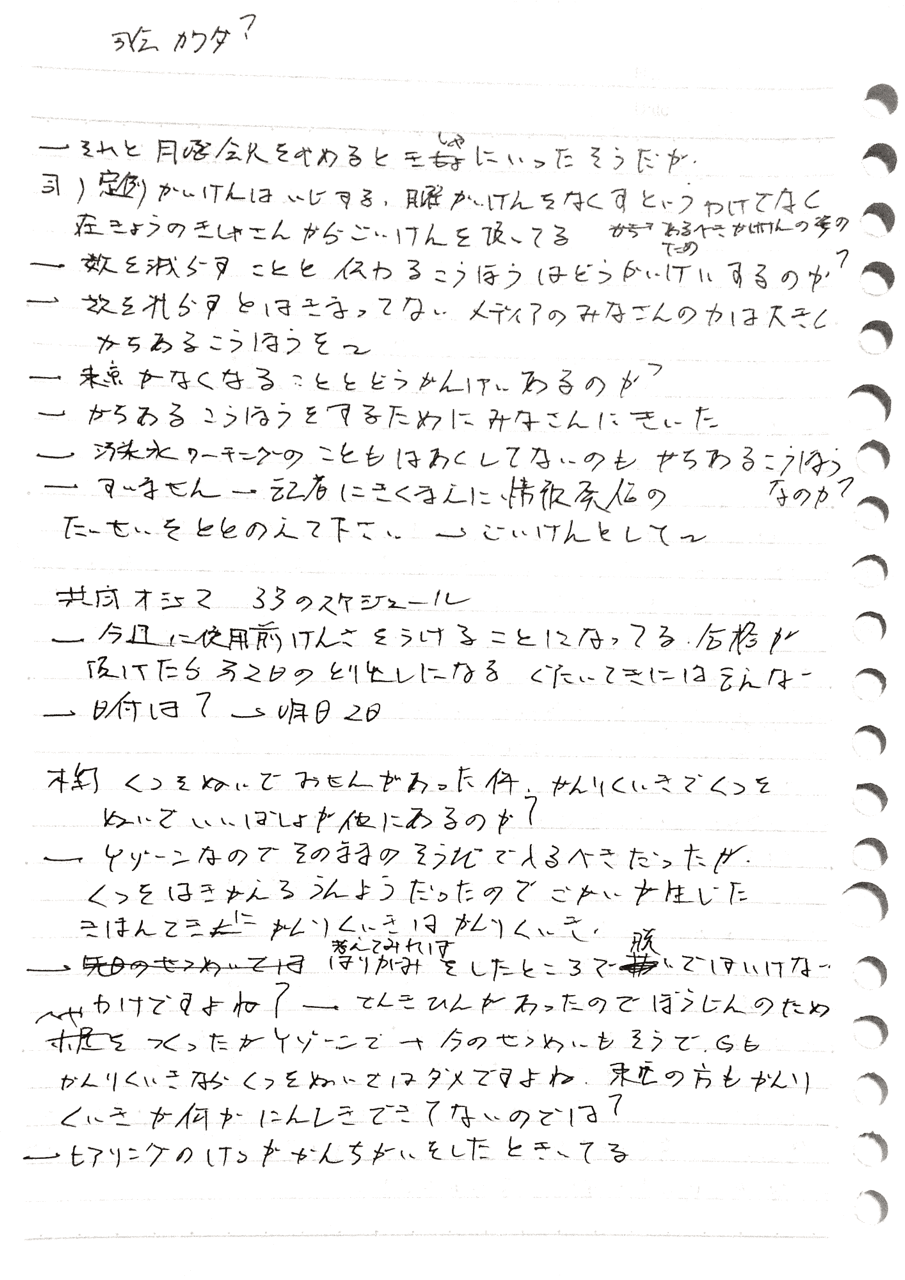 カワダ?
ーそれと月曜会見をやめるときしゃにいったそうだが、
司)定例かいけんはいじする、月曜かいけんをなくすというわけでなく
在きょうのきしゃさんからごいけんを頂いてる あるべきかいけんの姿の
ため
ー数を減らすことと伝わるこうほうはどうかいけいするのか?
ー数を礼らすとはきまってない メディアのみなさんの力は大きく
かちあるこうほうを〜
ー東京がなくなることとどうかんけいあるのか?
ーかちあるこうほうをするためにみなさんにきいた
ー汚染水ワーキングのこともはあくしてないのもかちあるこうほう
なのか?
ーすいません→記者にきくまえに情報発信の
たいせいをととのえて下さい →ごいけんとして〜
共同オジマ 33のスケジュール
ー今週に使用前けんさをうけることになってる、合格が
頂けたら32日のとり出しになる ぐたいてきには
→日付は?→明日2日
木野 くつをぬいでおせんがあった件、かんりくいきでくつを
ぬいでいいばしょが他にあるのか?
ーYゾーンなのでそのままのそうびで入るべきだったが、
くつをはきかえるうんようだったのでごかいが生じた
きほんてきにかんりくいきはかんりくいき、
→先日のせつめいでは 考えてみれば はりがみをしたところで脱いではいけない
わけですよね?→てんきひんがあったのでぼうじんのため
へや
をつくったがYゾーンで→今のせつめいもそうで、Gも
かんりくいきならくつをぬいではダメですよね、東電の方もかんり
くいきが何かにんしきできてないのでは?
→ヒアリングのけんがかんちがいをしたときいてる